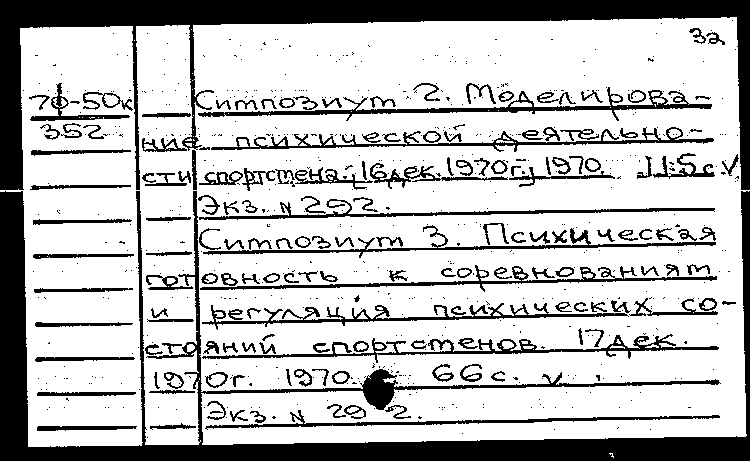 32
7ф-50к Симпозиум 2. Моделирова-
352
ние психической деятельно-
сти спортсмена. [16 дек. 1970г.] 1970. 115 с. V
Экз. N 292.
Симпозиум 3. Психическая
готовность к соревнованиям
и регуляция психических со-
стояний спортсменов. 17 дек.
1970г. 1970. 66 с. v
Экз. N 292.